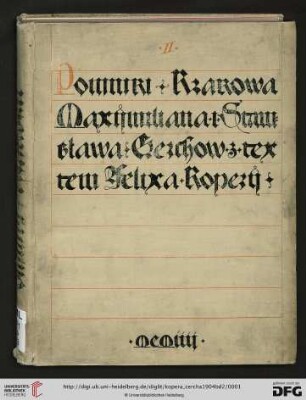 · II ·
Pomniki · Krakowa
Maxymiliana · i · Stani
sława · Cerchów · z · tex
tem Felixa · Kopery ·
· MCMIIII ·
UNIVERSITÄTS-
BIBLIOTHEK
HEIDELBERG
http://digi.ub.uni-heidelberg.de/diglit/kopera_cercha1904bd2/0001
© Universitätsbibliothek Heidelberg
gefördert durch die
DFG